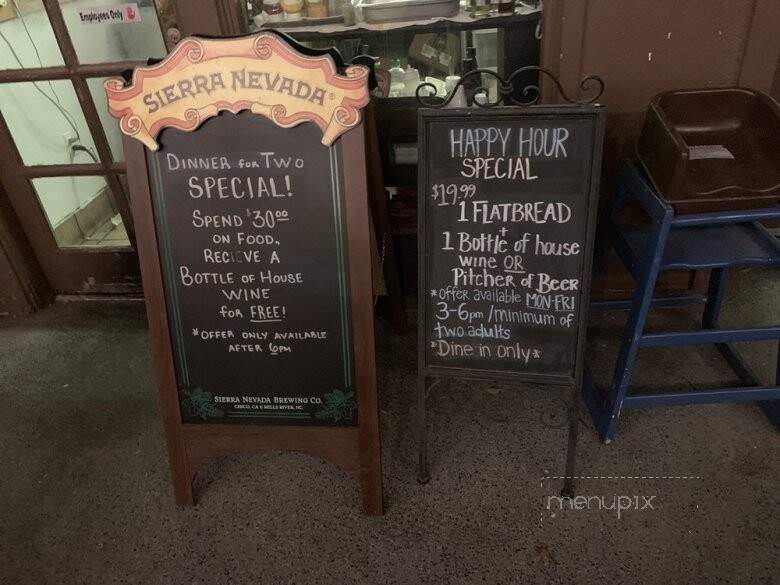 Employees Only
SIERRA NEVADA®
DINNER FOR TWO
SPECIAL!
SPEND $30.00
ON FOOD.
RECIEVE A
BOTTLE OF HOUSE
WINE
FOR FREE!
*OFFER ONLY AVAILABLE
AFTER 6PM
SIERRA NEVADA BREWING CO.
CHICO, CA & MILLS RIVER, NC
HAPPY HOUR
SPECIAL
$19.99
1 FLATBREAD
+
1 Bottle of house
wine OR
Pitcher of Beer
*offer available MON-FRI
3-6pm/minimum of
two adults
*Dine in only*
menupix